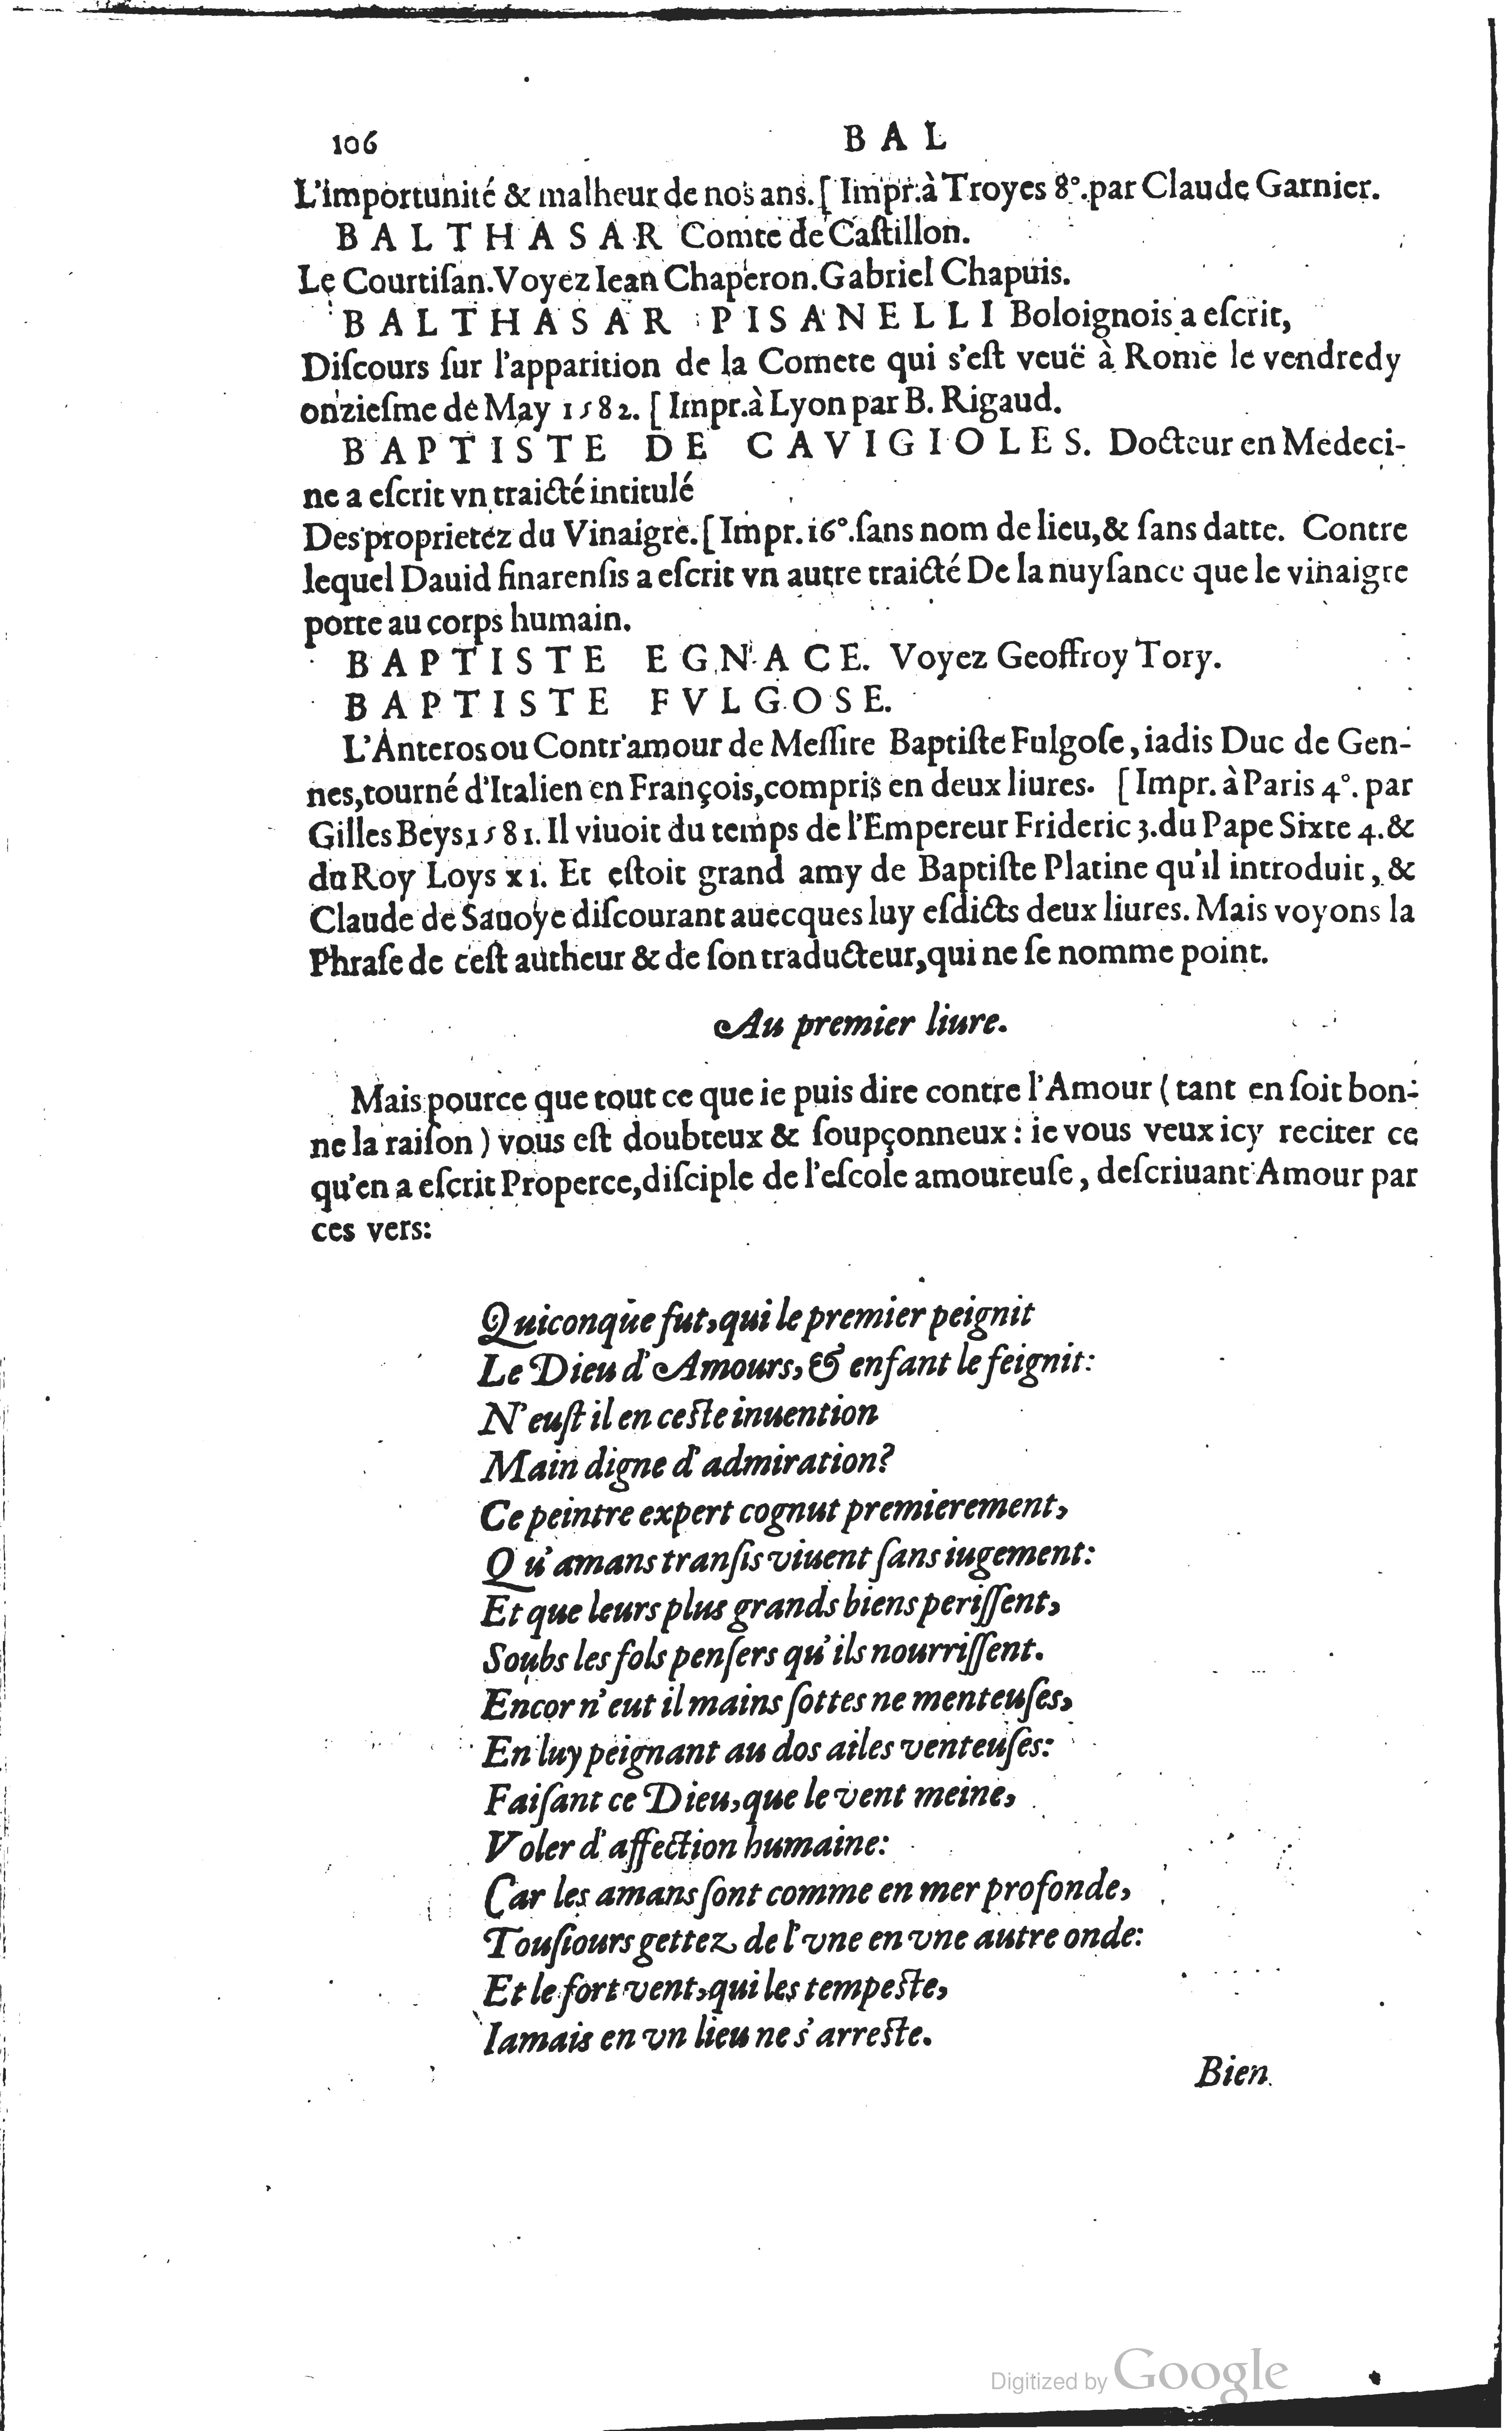 106 BAL
L'importunité & malheur de nos ans. [ Impr. à Troyes 8°. par Claude Garnier.
BALTHASAR Comte de Caſtillon.
Le Courtiſan. Voyez Iean Chaperon. Gabriel Chapuis.
BALTHASAR PISANELLI Boloignois a eſcrit,
Diſcours ſur l'apparition de la Comete qui s'eſt veuë à Rome le vendredy
onzieſme de May 1582. [ Impr. à Lyon par B. Rigaud.
BAPTISTE DE CAVIGIOLES. Docteur en Medeci-
ne a eſcrit vn traicté intitulé
Des proprietez du Vinaigre. [ Impr. 16°. ſans nom de lieu, & ſans datte. Contre
lequel Dauid finarenſis a eſcrit vn autre traicté De la nuyſance que le vinaigre
porte au corps humain.
BAPTISTE EGNACE. Voyez Geoffroy Tory.
BAPTISTE FVLGOSE.
L'Anteros ou Contr'amour de Meſſire Baptiſte Fulgoſe, iadis Duc de Gen-
nes, tourné d'Italien en François, compris en deux liures. [ Impr. à Paris 4°. par
Gilles Beys, 1581. Il viuoit du temps de l'Empereur Frideric 3. du Pape Sixte 4. &
du Roy Loys xi. Et eſtoit grand amy de Baptiſte Platine qu'il introduit, &
Claude de Sauoye diſcourant auecques luy eſdicts deux liures. Mais voyons la
Phraſe de ceſt autheur & de ſon traducteur, qui ne ſe nomme point.
Au premier liure.
Mais pource que tout ce que ie puis dire contre l'Amour ( tant en ſoit bon-
ne la raiſon ) vous eſt doubteux & ſoupçonneux : ie vous veux icy reciter ce
qu'en a eſcrit Properce, diſciple de l'eſcole amoureuſe, deſcriuant Amour par
ces vers:
Quiconque fut, qui le premier peignit
Le Dieu d'Amours, & enfant le feignit:
N'euſt il en ceſte inuention
Main digne d'admiration?
Ce peintre expert cognut premierement,
Qu'amans tranſis viuent ſans iugement:
Et que leurs plus grands biens periſſent,
Soubs les fols penſers qu'ils nourriſſent.
Encor n'eut il mains ſottes ne menteuſes,
En luy peignant au dos ailes venteuſes:
Faiſant ce Dieu, que le vent meine,
Voler d'affection humaine:
Car les amans ſont comme en mer profonde,
Touſiours gettez de l'vne en vne autre onde:
Et le fort vent, qui les tempeſte,
Iamais en vn lieu ne s'arreſte.
Bien
Digitized by Google